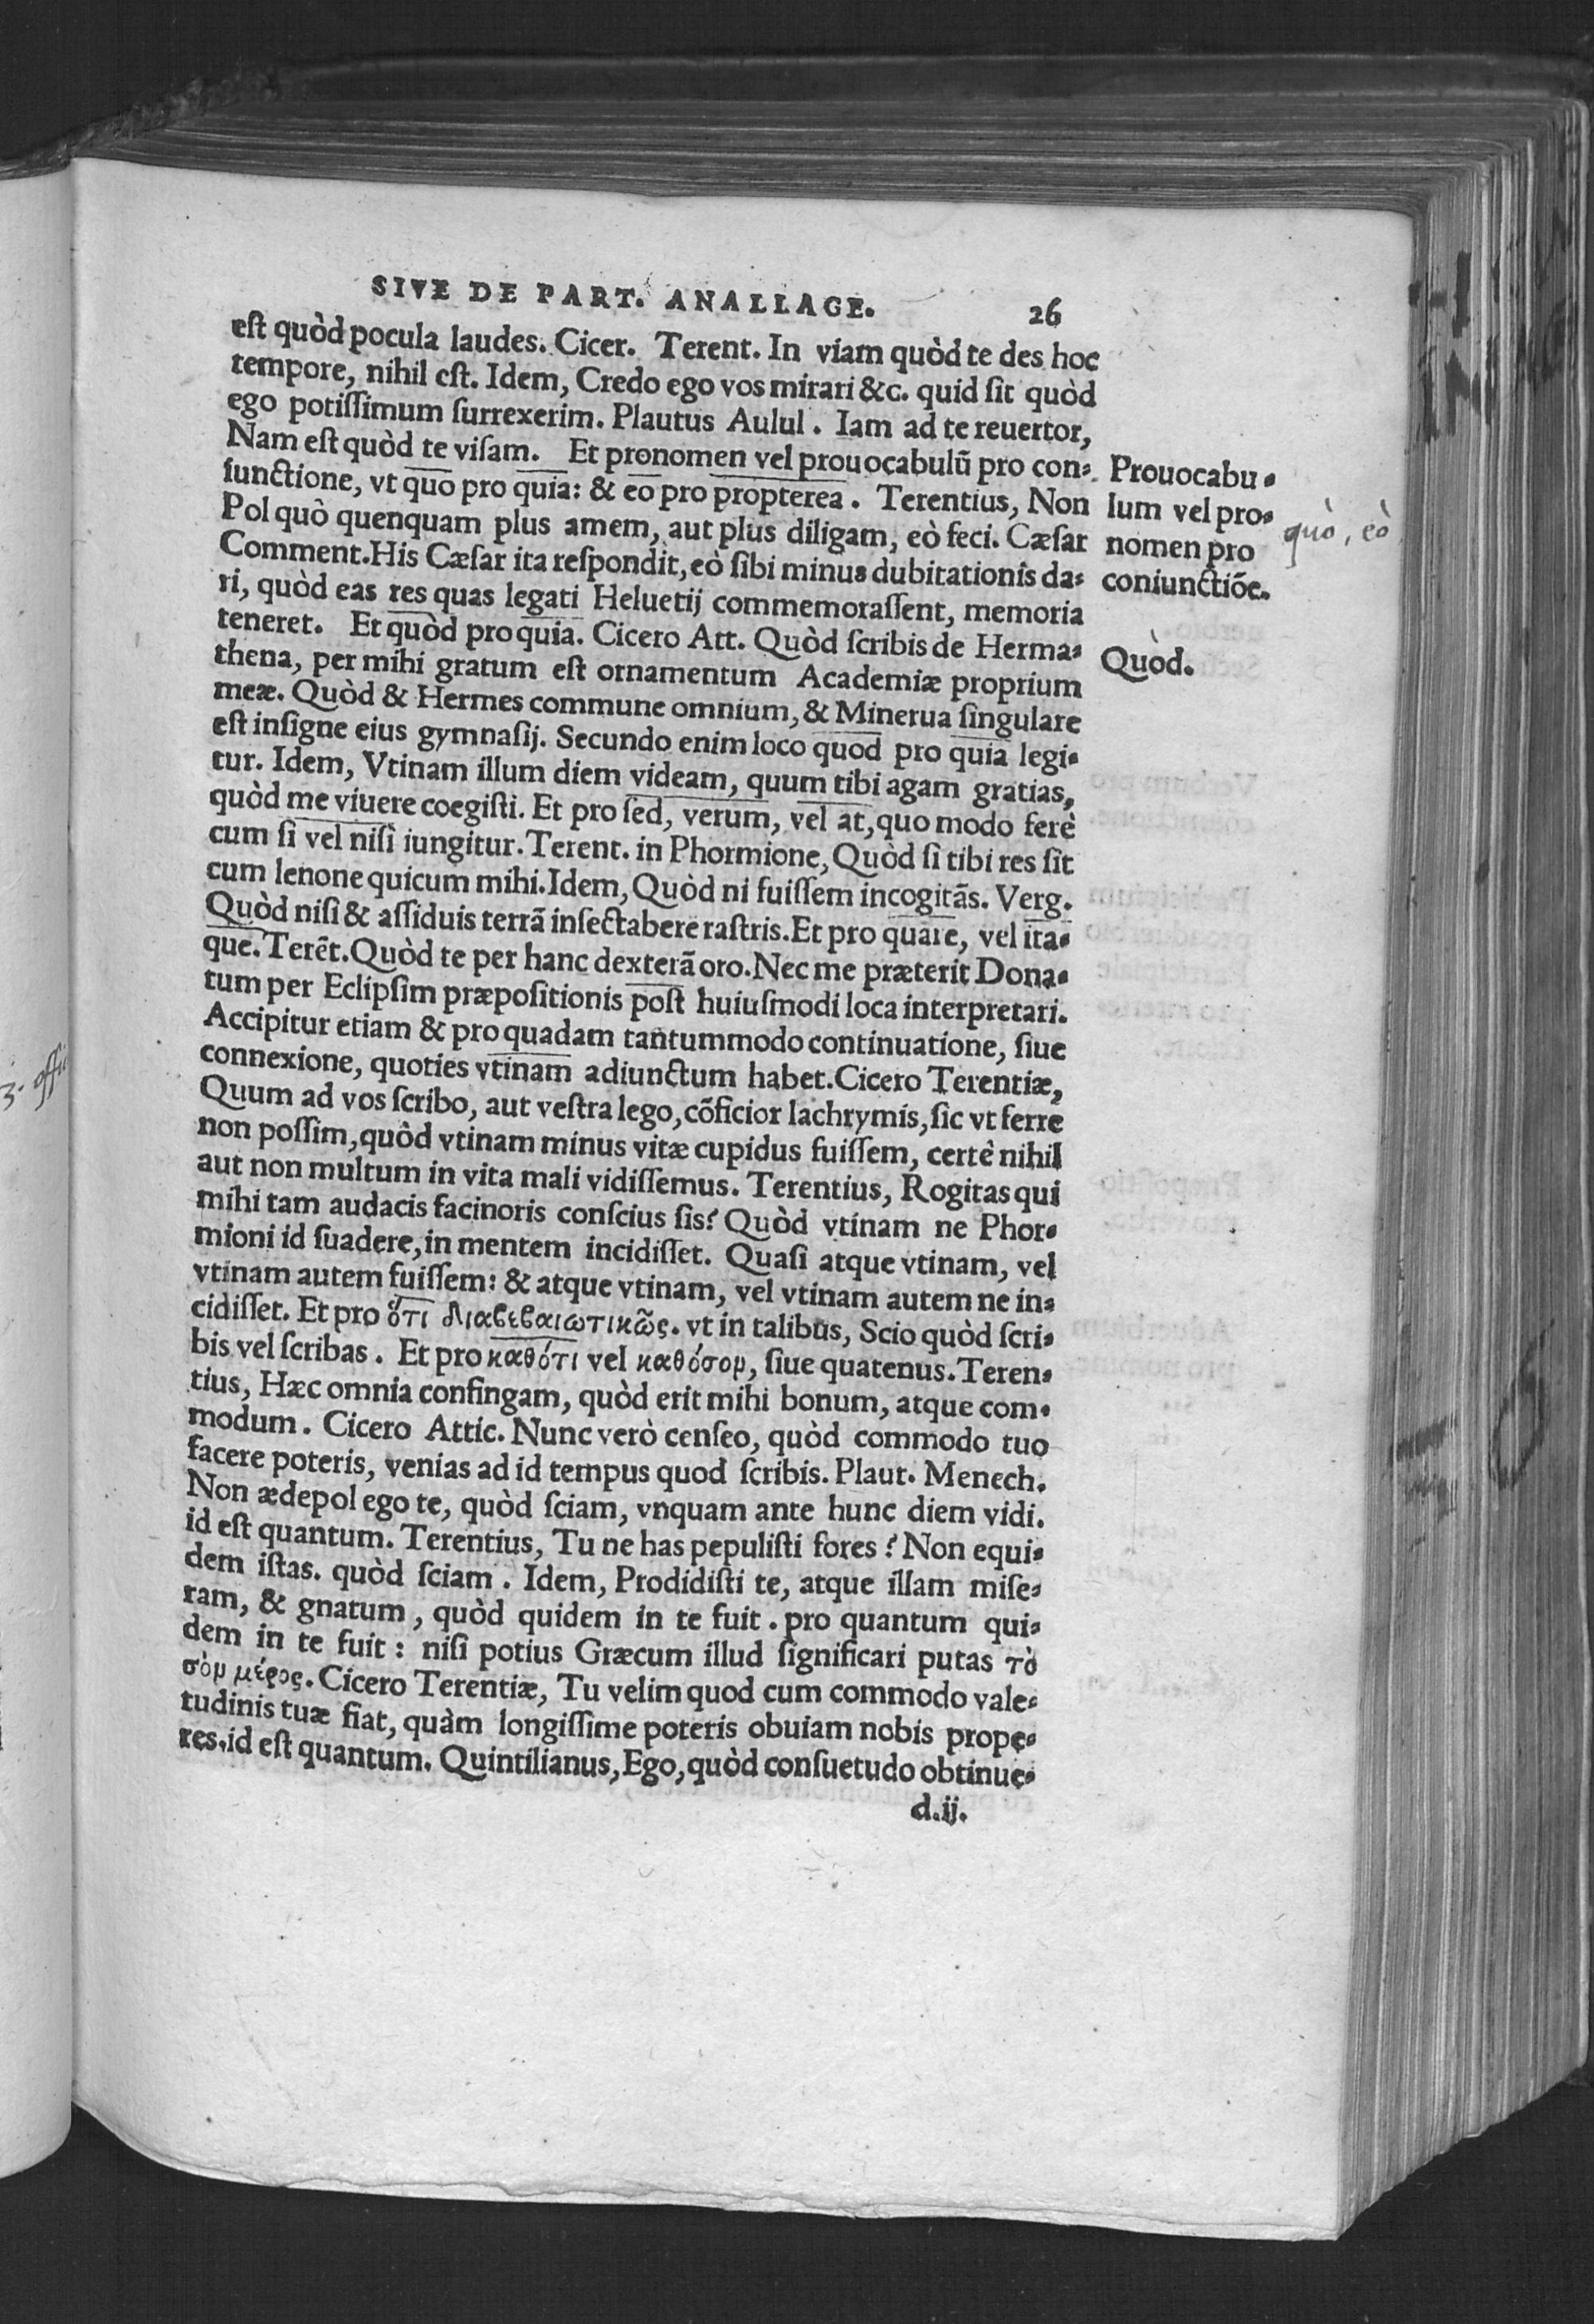 SIVE DE PART. ANALLAGE. 26
est quòd pocula laudes. Cicer. Terent. In viam quòd te des hoc
tempore, nihil est. Idem, Credo ego vos mirari &c. quid sit quòd
ego potissimum surrexerim. Plautus Aulul. Iam ad te reuertor,
Nam est quòd te visam. Et pronomen vel prouocabulū pro con-
iunctione, vt quo pro quia: & eo pro propterea. Terentius, Non
Pol quò quenquam plus amem, aut plus diligam, eò feci. Cæsar
Comment. His Cæsar ita respondit, eò sibi minus dubitationis da-
ri, quòd eas res quas legati Heluetij commemorassent, memoria
teneret. Et quòd pro quia. Cicero Att. Quòd scribis de Herma-
thena, per mihi gratum est ornamentum Academiæ proprium
meæ. Quòd & Hermes commune omnium, & Minerua singulare
est insigne eius gymnasij. Secundo enim loco quod pro quia legi-
tur. Idem, Vtinam illum diem videam, quum tibi agam gratias,
quòd me viuere coegisti. Et pro sed, verum, vel at, quo modo ferè
cum si vel nisi iungitur. Terent. in Phormione, Quòd si tibi res sit
cum lenone quicum mihi. Idem, Quòd ni fuissem incogitās. Verg.
Quòd nisi & assiduis terrā insectabere rastris. Et pro quare, vel ita-
que. Terēt. Quòd te per hanc dexterā oro. Nec me præterit Dona-
tum per Eclipsim præpositionis post huiusmodi loca interpretari.
Accipitur etiam & pro quadam tantummodo continuatione, siue
connexione, quoties vtinam adiunctum habet. Cicero Terentiæ,
Quum ad vos scribo, aut vestra lego, cōficior lachrymis, sic vt ferre
non possim, quòd vtinam minus vitæ cupidus fuissem, certè nihil
aut non multum in vita mali vidissemus. Terentius, Rogitas qui
mihi tam audacis facinoris conscius sis? Quòd vtinam ne Phor-
mioni id suadere, in mentem incidisset. Quasi atque vtinam, vel
vtinam autem fuissem: & atque vtinam, vel vtinam autem ne in-
cidisset. Et pro ὅτι διαβεβαιωτικῶς. vt in talibus, Scio quòd scri-
bis vel scribas. Et pro καθότι vel καθόσον, siue quatenus. Teren-
tius, Hæc omnia confingam, quòd erit mihi bonum, atque com-
modum. Cicero Attic. Nunc verò censeo, quòd commodo tuo
facere poteris, venias ad id tempus quod scribis. Plaut. Menech.
Non ædepol ego te, quòd sciam, vnquam ante hunc diem vidi.
id est quantum. Terentius, Tu ne has pepulisti fores? Non equi-
dem istas. quòd sciam. Idem, Prodidisti te, atque illam mise-
ram, & gnatum, quòd quidem in te fuit. pro quantum qui-
dem in te fuit: nisi potius Græcum illud significari putas τὸ
σὸν μέρος. Cicero Terentiæ, Tu velim quod cum commodo vale-
tudinis tuæ fiat, quàm longissime poteris obuiam nobis prope-
res. id est quantum. Quintilianus, Ego, quòd consuetudo obtinue-
d.ij.
Prouocabu-
lum vel pro-
nomen pro
coniunctiōe.
quò, eò
Quòd.